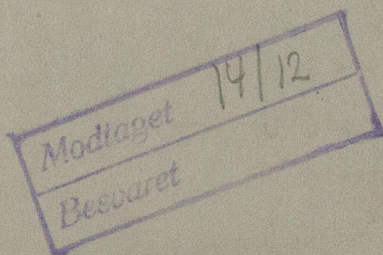 Modtaget 14/12
Besvaret